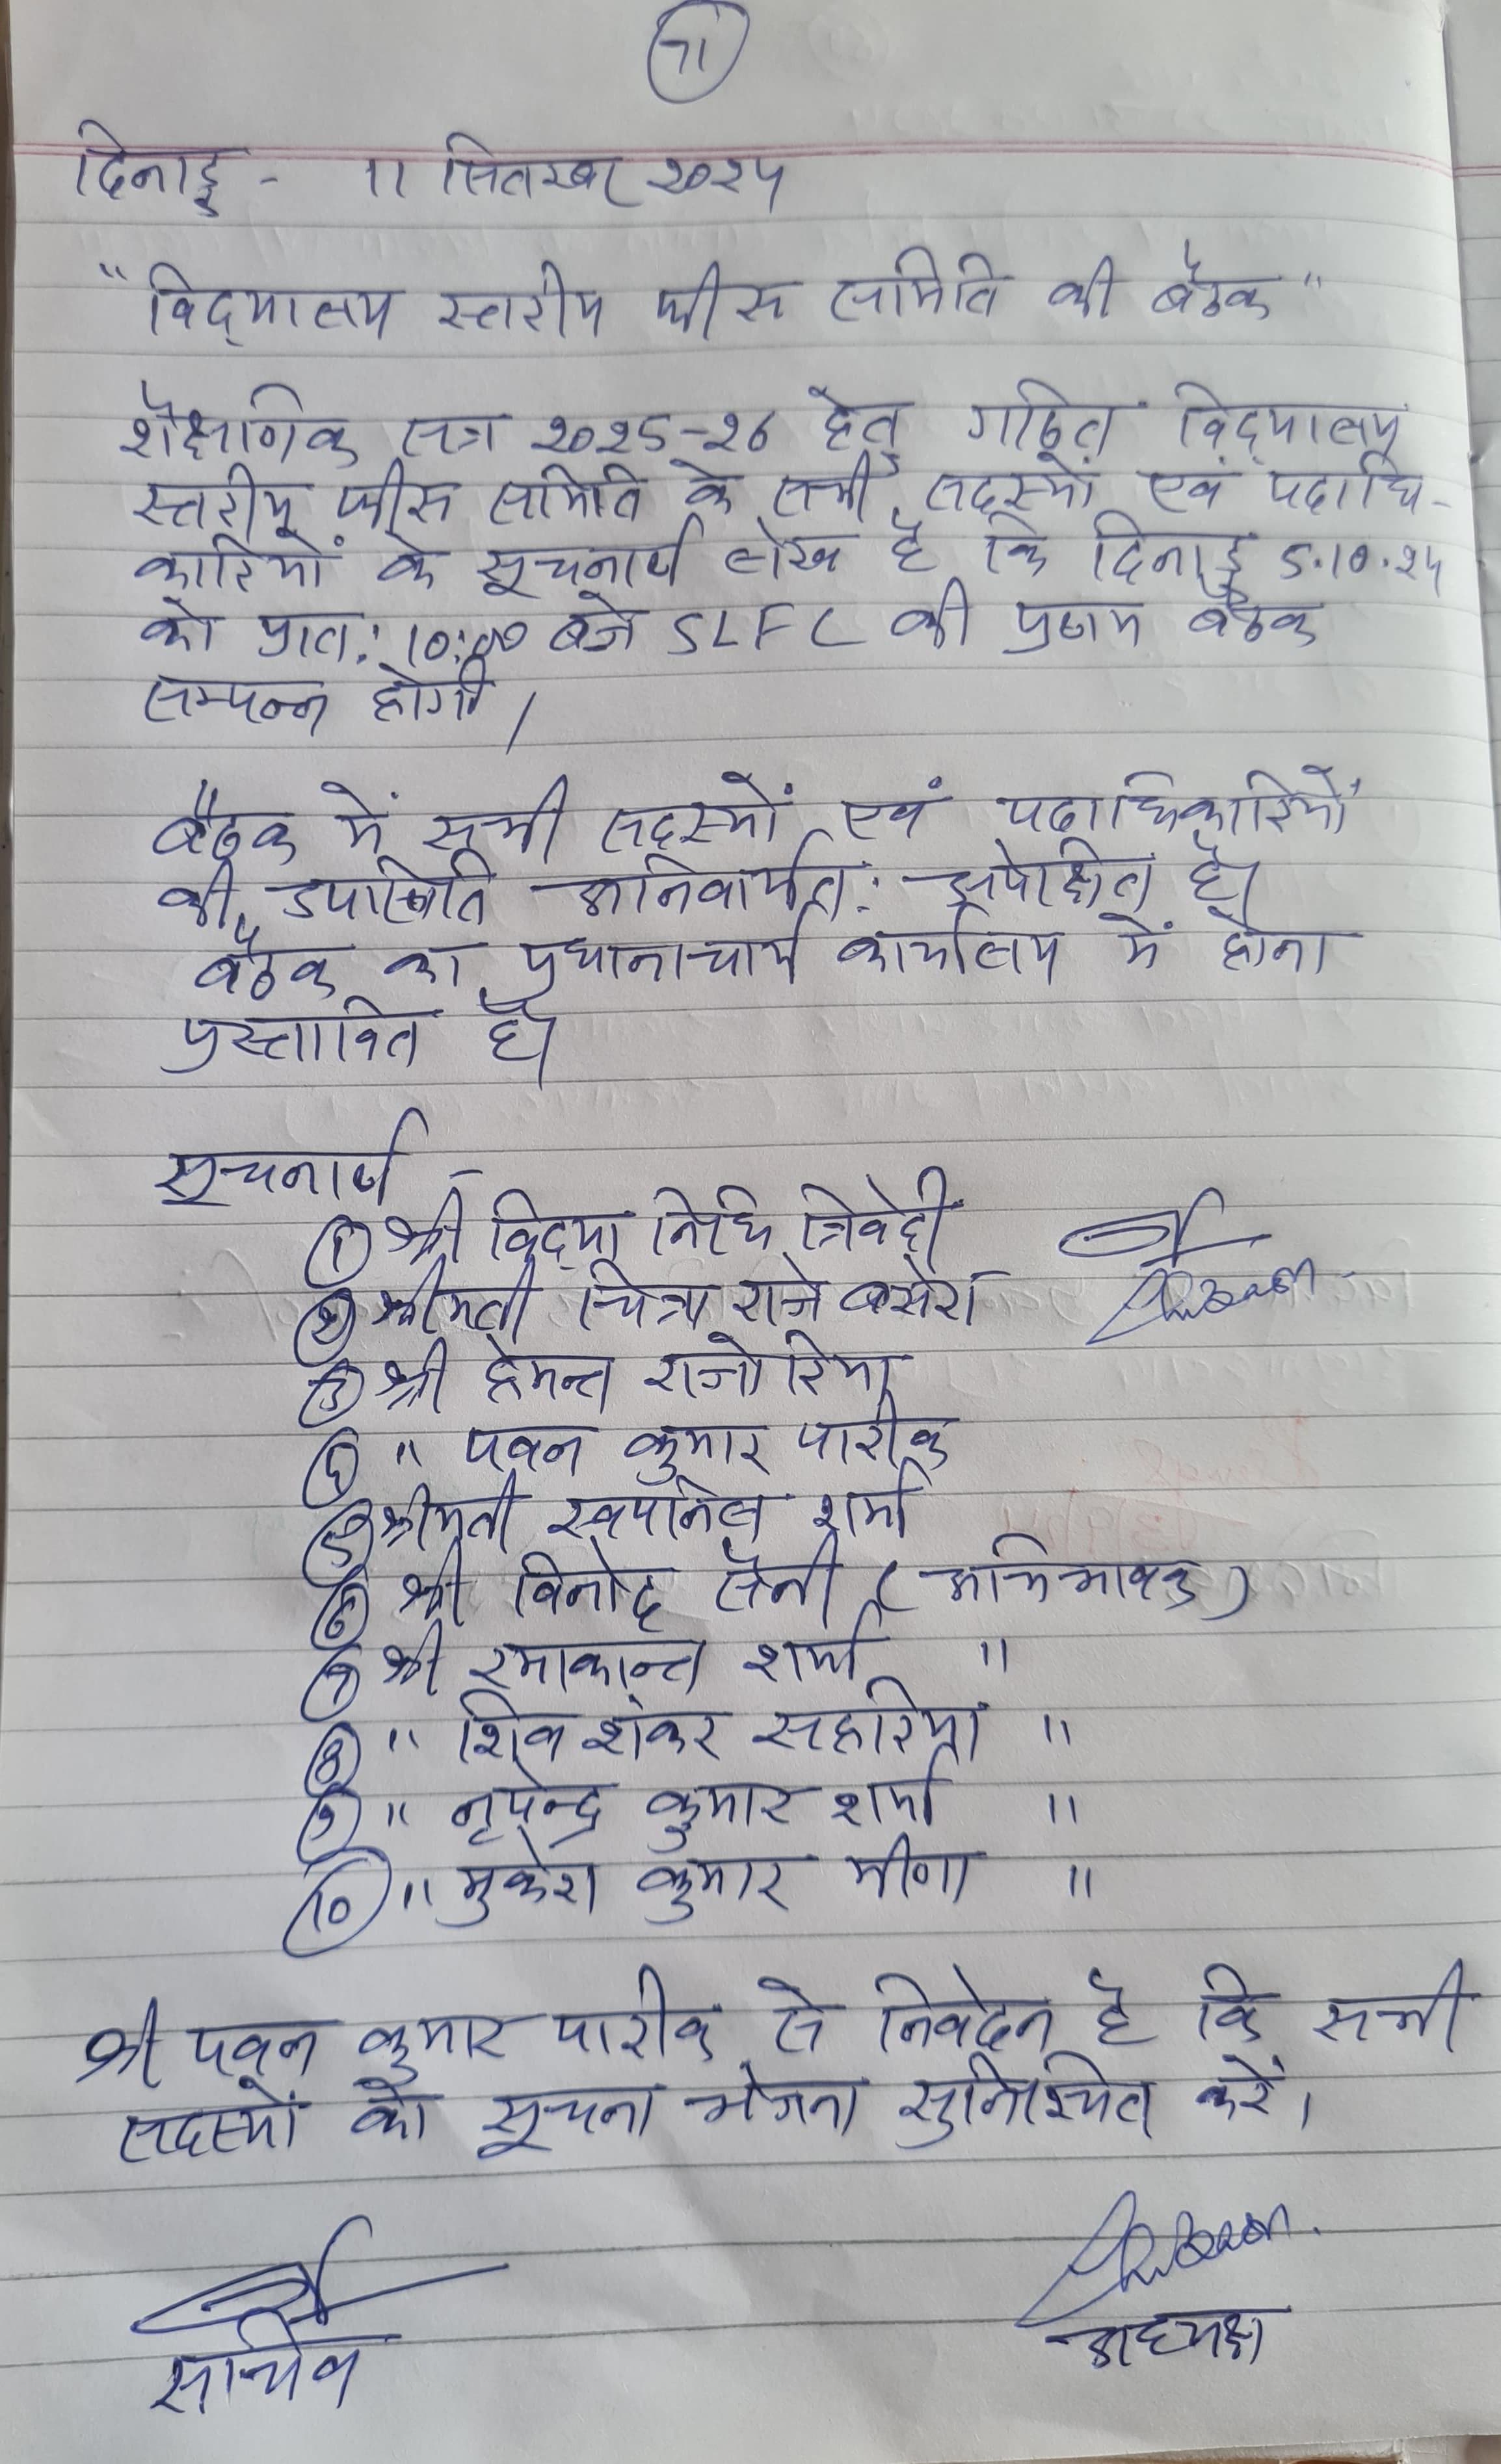 71
दिनाङ्क - 11 सितम्बर २०२५
"विद्यालय स्तरीय फीस समिति की बैठक"
शैक्षणिक सत्र २०२५-२६ हेतु गठित विद्यालय
स्तरीय फीस समिति के सभी सदस्यों एवं पदाधि-
कारियों के सूचनार्थ लेख है कि दिनाङ्क 5.10.२५
को प्रात: 10:00 बजे SLFC की प्रथम बैठक
सम्पन्न होगी।
बैठक में सभी सदस्यों एवं पदाधिकारियों
की उपस्थिति अनिवार्यत: अपेक्षित है।
बैठक का प्रधानाचार्य कार्यालय में होना
प्रस्तावित है।
सूचनार्थ -
① श्री विद्या निधि त्रिवेदी
② श्रीमती चित्रा राजे बसेरा
③ श्री हेमन्त राजोरिया
④ " पवन कुमार पारीक
⑤ श्रीमती स्वपनिल शर्मा
⑥ श्री विनोद सैनी (अभिभावक)
⑦ श्री रमाकान्त शर्मा "
⑧ " शिव शंकर सहारिया "
⑨ " नृपेन्द्र कुमार शर्मा "
⑩ " मुकेश कुमार मीणा "
श्री पवन कुमार पारीक से निवेदन है कि सभी
सदस्यों को सूचना भेजना सुनिश्चित करें।
सचिव
अध्यक्ष